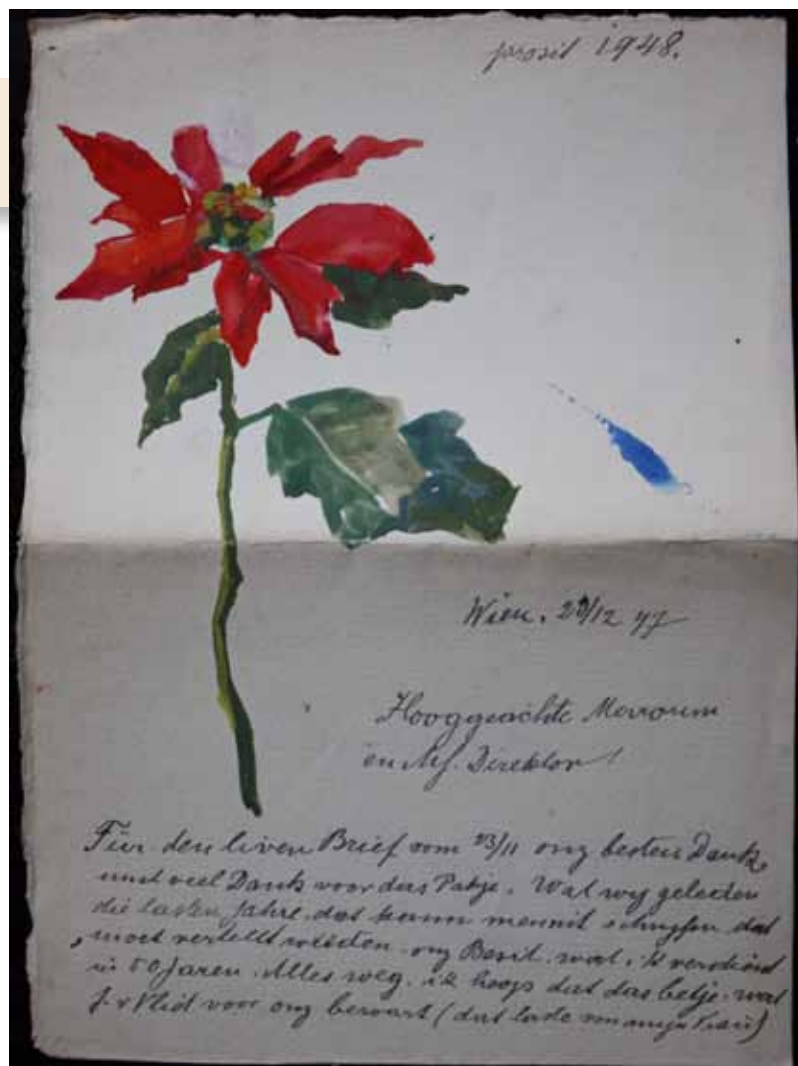 prosit 1948.
Wien. 29/12 47
Hooggeachte Mevrouw
en Direktor!
Für den liven Brief vom 23/11 ony besten Dank,
und veel Dank voor das Pakje. Wat wy geleden
die lasten Jahre. dat kann men nit schryfen. dat
moet vertellt werden. ony Besit. wat. ik verdiend
in 50 Jaren. Alles weg. ik hoop dat das betje. wat
J. v Vliet voor ony bewart (dat laste von myn Frau)